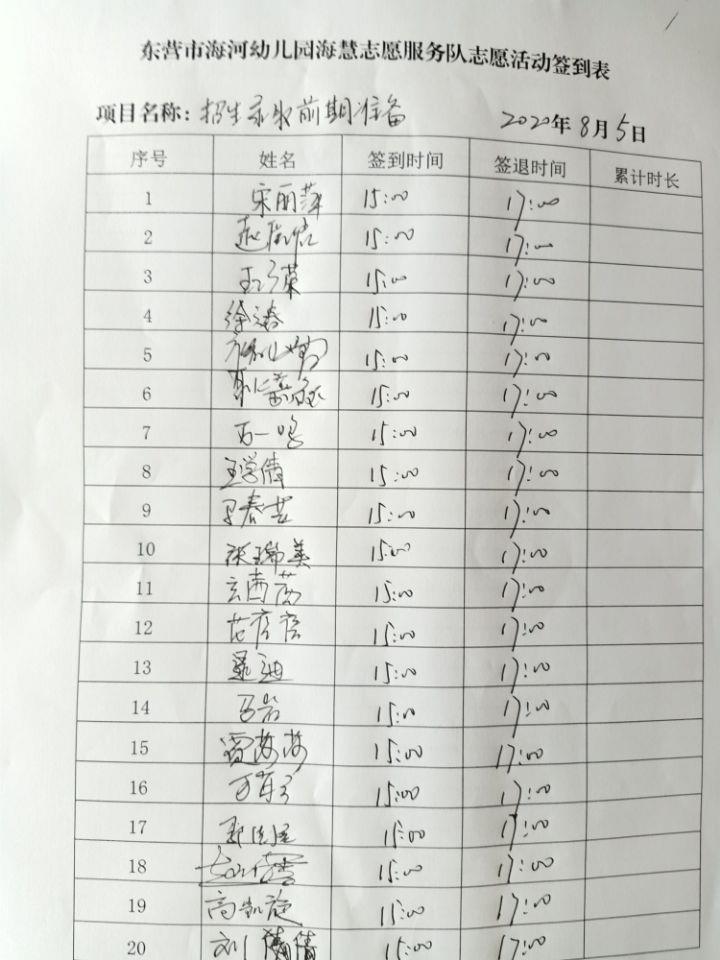 东营市海河幼儿园海慧志愿服务队志愿活动签到表
项目名称：招生录取前期准备 2020年8月5日
序号 姓名 签到时间 签退时间 累计时长
1 宋丽萍 15:00 17:00
2 15:00 17:00
3 15:00 17:00
4 徐涛 15:00 17:00
5 15:00 17:00
6 15:00 17:00
7 15:00 17:00
8 王学倩 15:00 17:00
9 15:00 17:00
10 张瑞美 15:00 17:00
11 15:00 17:00
12 15:00 17:00
13 15:00 17:00
14 马岩 15:00 17:00
15 15:00 17:00
16 15:00 17:00
17 15:00 17:00
18 15:00 17:00
19 高凯旋 15:00 17:00
20 刘倩倩 15:00 17:00